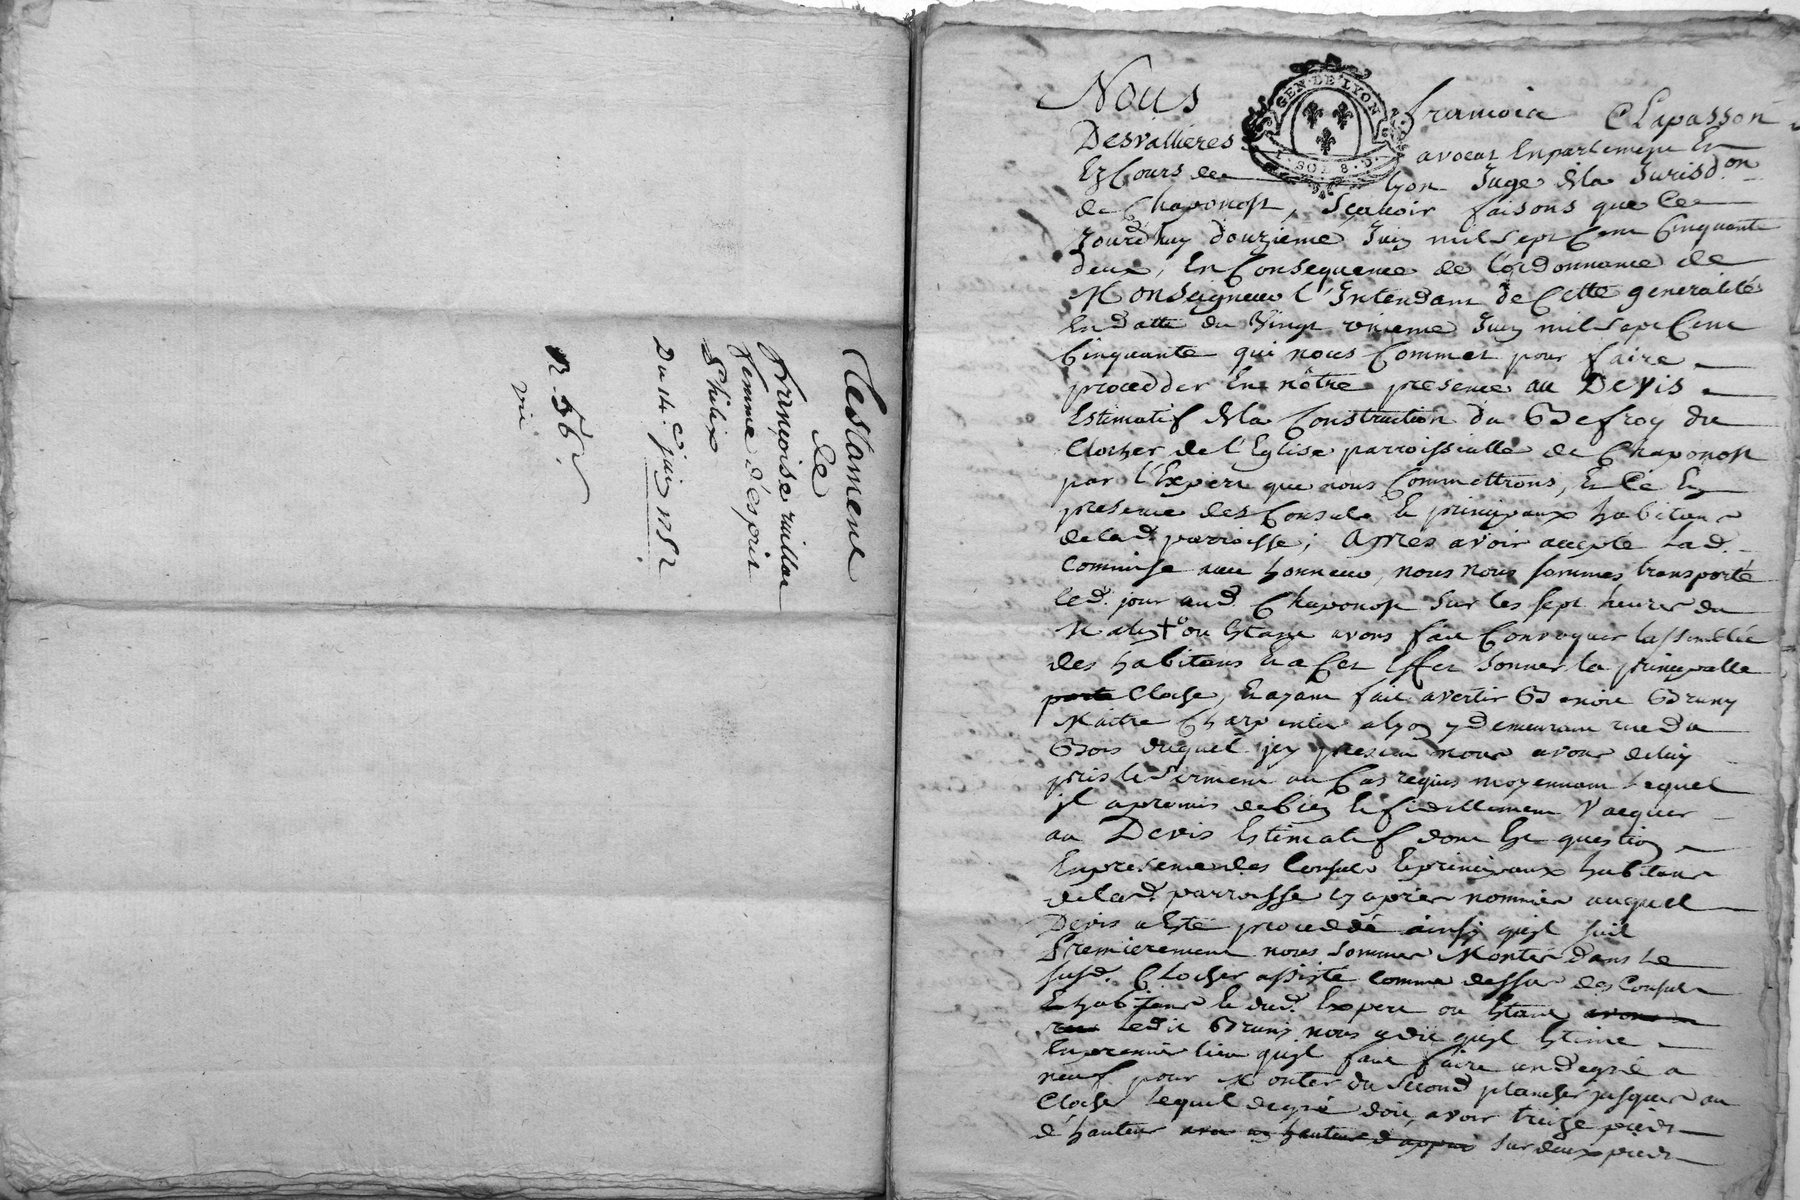 Testament
de
Françoise
femme d'esprit
Du 14e juin 1752
n. 56
GEN·DE·LYON
1·SOL 8·D·
Nous francois Clapasson
Desvallieres avocat En parlement Et
Ez Cours de Lyon Juge de la Jurisd.on
de Chaponost, Sçavoir faisons que Ce
Jourdhuy douzieme Juin mil sept Cent Cinquante
deux, En Consequence de l'ordonnance de
Monseigneur l'Intendant de Cette generalité
En datte du Vingt unieme Juin mil sept Cent
Cinquante qui nous Commet pour faire
proceder En nôtre presence au Devis
Estimatif de la Construction du Beffroy du
Clocher de l'Eglise parroissialle de Chaponost
par l'Expert que nous Commettrons, Et Ce En
presence des Consuls Et principaux habitans
de lad. parroisse; Apres avoir accepté Lad.
Commise avec honneur, nous nous sommes transporté
Led. jour aud. Chaponost sur les sept heures du
Matin + ou Estant avons fait Convoquer lassemblée
des habitans Et a Cet Effet sonner la principalle
porte Cloche, Et ayant fait avertir Benoit Bruny
Maitre Charpentier a Lyon y demeurant rue du
Bois duquel icy present nous avons de luy
pris le serment au Cas requis moyennant Lequel
il a promis de bien Et fidellement Vacquer
au Devis Estimatif dont Est question
En presence des Consuls Et principaux habitans
de lad. parroisse cy apres nommés auquel
Devis a Esté procedé ainsy qu'il suit
Premierement nous sommes Montés dans Le
susd. Clocher assisté comme dessus des Consuls
Et habitans Et dud. Expert ou Estant avons
Ledit Bruny nous a dit qu'il Estime
En premier lieu qu'il faut faire un degré a
neuf pour Monter du second plancher jusques au
Cloche Lequel degré doit avoir treize pieds
d'hauteur sur deux pieds